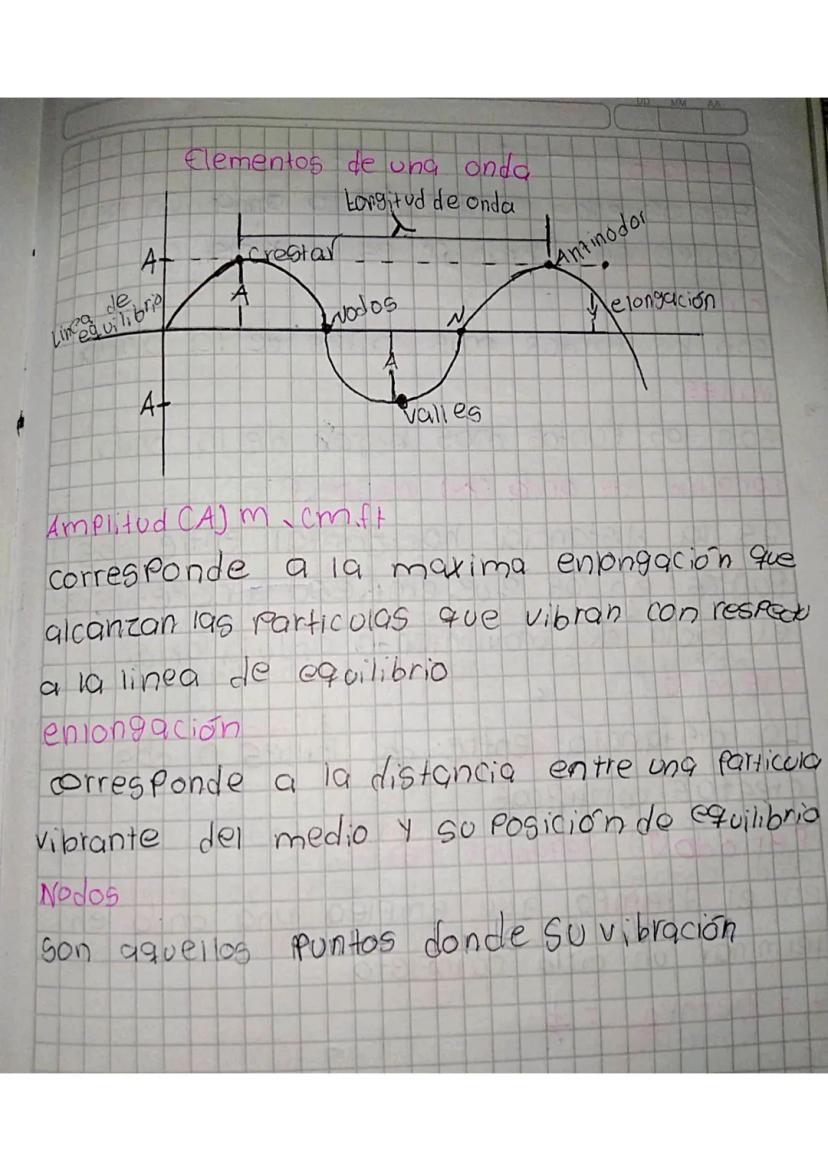 DD MM AA
Elementos de una onda
Longitud de onda
λ
A
crestar
Antinodor
A
Linea de equilibrio
Nodos
N
y elongación
A
A
valles
Amplitud (A) m, cm, ft
corresponde a la maxima enlongación que
alcanzan las particulas que vibran con respecto
a la linea de equilibrio
enlongación
corresponde a la distancia entre una particula
vibrante del medio y su posición de equilibrio
Nodos
son aquellos puntos donde su vibración